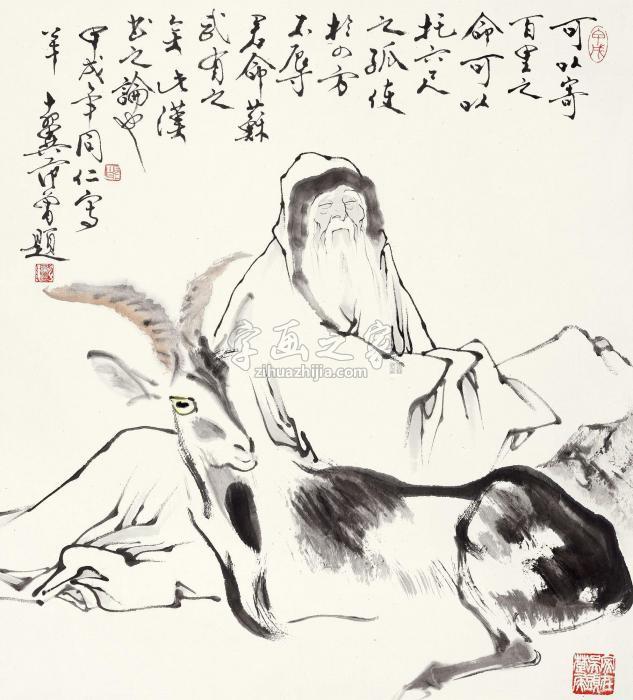 可以寄
百里之
命可以
托六尺
之孤使
於四方
不辱
君命蘇
武有之
矣此漢
書之論也
甲戌年同仁寫
羊十翼范曾題
字画之家
zihuazhijia.com